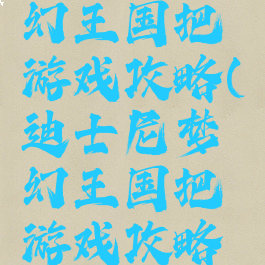 幻王国把
游戏攻略(
迪士尼梦
幻王国把
游戏攻略